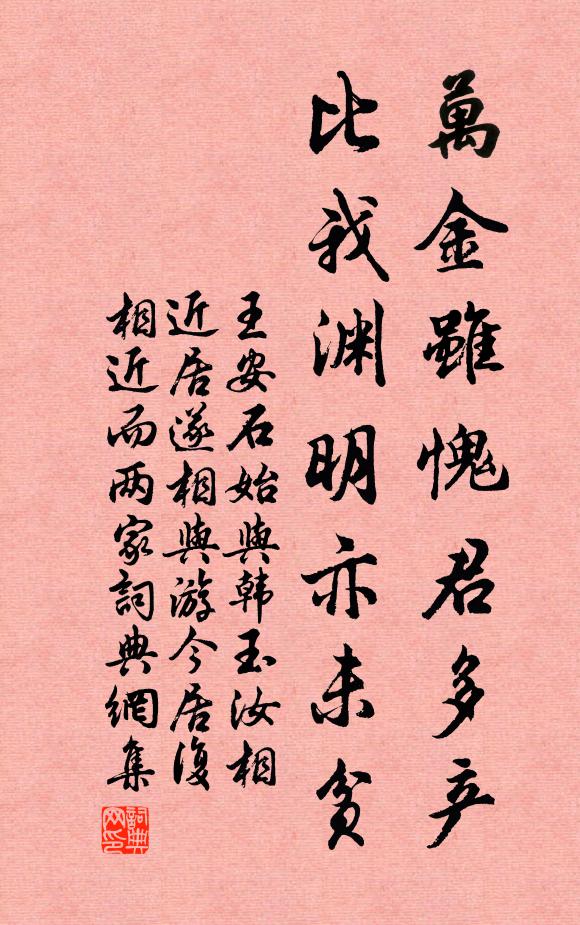 萬金雖愧君多产
比我渊明亦未貧
王安石始與韩玉汝相
近居遂相與游今居復
相近而两家詞典網集
詞典网印